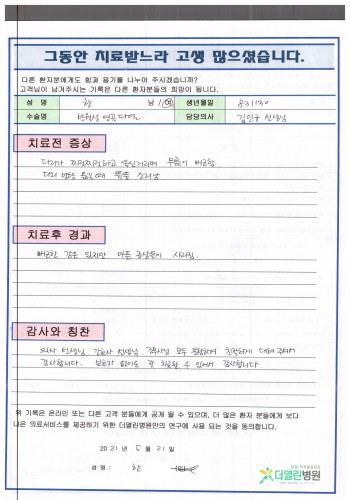 그동안 치료받느라 고생 많으셨습니다.
다른 환자분에게도 힘과 용기를 나누어 주시겠습니까?
고객님이 남겨주시는 기록은 다른 환자분들의 희망이 됩니다.
성 명 한 남 / 여 생년월일 831130
수술명 반월상 연골 담당의사 김민규 선생님
치료전 증상
다리가 찌릿찌릿하고 욱신거리며 무릎이 뻐근함
다리 뚝뚝 소리남
치료후 경과
뻐근한 감은 있지만 아픈 증상들이 사라짐
감사와 칭찬
의사 선생님, 간호사 선생님, 모두 친절하게 대해 주셔서
감사합니다. 보호자 없이도 잘 치료할 수 있어서 감사합니다
위 기록은 온라인 또는 다른 고객 분들에게 공개 될 수 있으며, 더 많은 환자 분들에게 보다
나은 의료서비스를 제공하기 위한 더열린병원만의 연구에 사용 되는 것을 동의합니다.
2021 년 5 월 21 일
성 명 : 한 (인)
더열린병원